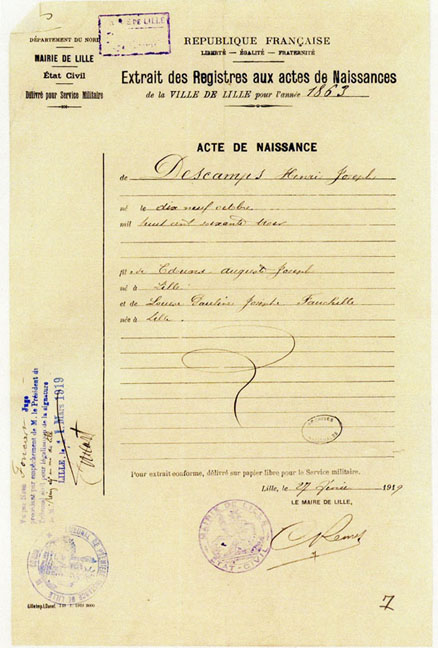 DÉPARTEMENT DU NORD
MAIRIE DE LILLE
État Civil
Délivré pour Service Militaire
MAIRIE DE LILLE
REPUBLIQUE FRANÇAISE
LIBERTÉ — ÉGALITÉ — FRATERNITÉ
Extrait des Registres aux actes de Naissances
de la VILLE DE LILLE pour l'année 1863
ACTE DE NAISSANCE
de Descamps Henri Joseph
né le dix neuf octobre
mil huit cent soixante trois
fils de Edouard auguste Joseph
né à Lille
et de Louise Pauline Josephe Fauchille
née à Lille.
Pour extrait conforme, délivré sur papier libre pour le Service militaire.
Lille, le 27 février 1919
LE MAIRE DE LILLE,
MAIRIE DE LILLE
ETAT-CIVIL
Vu par Nous Juge
procédant par empêchement de M. le Président du
pour légalisation de la signature
LILLE, le 1 MARS 1919
7